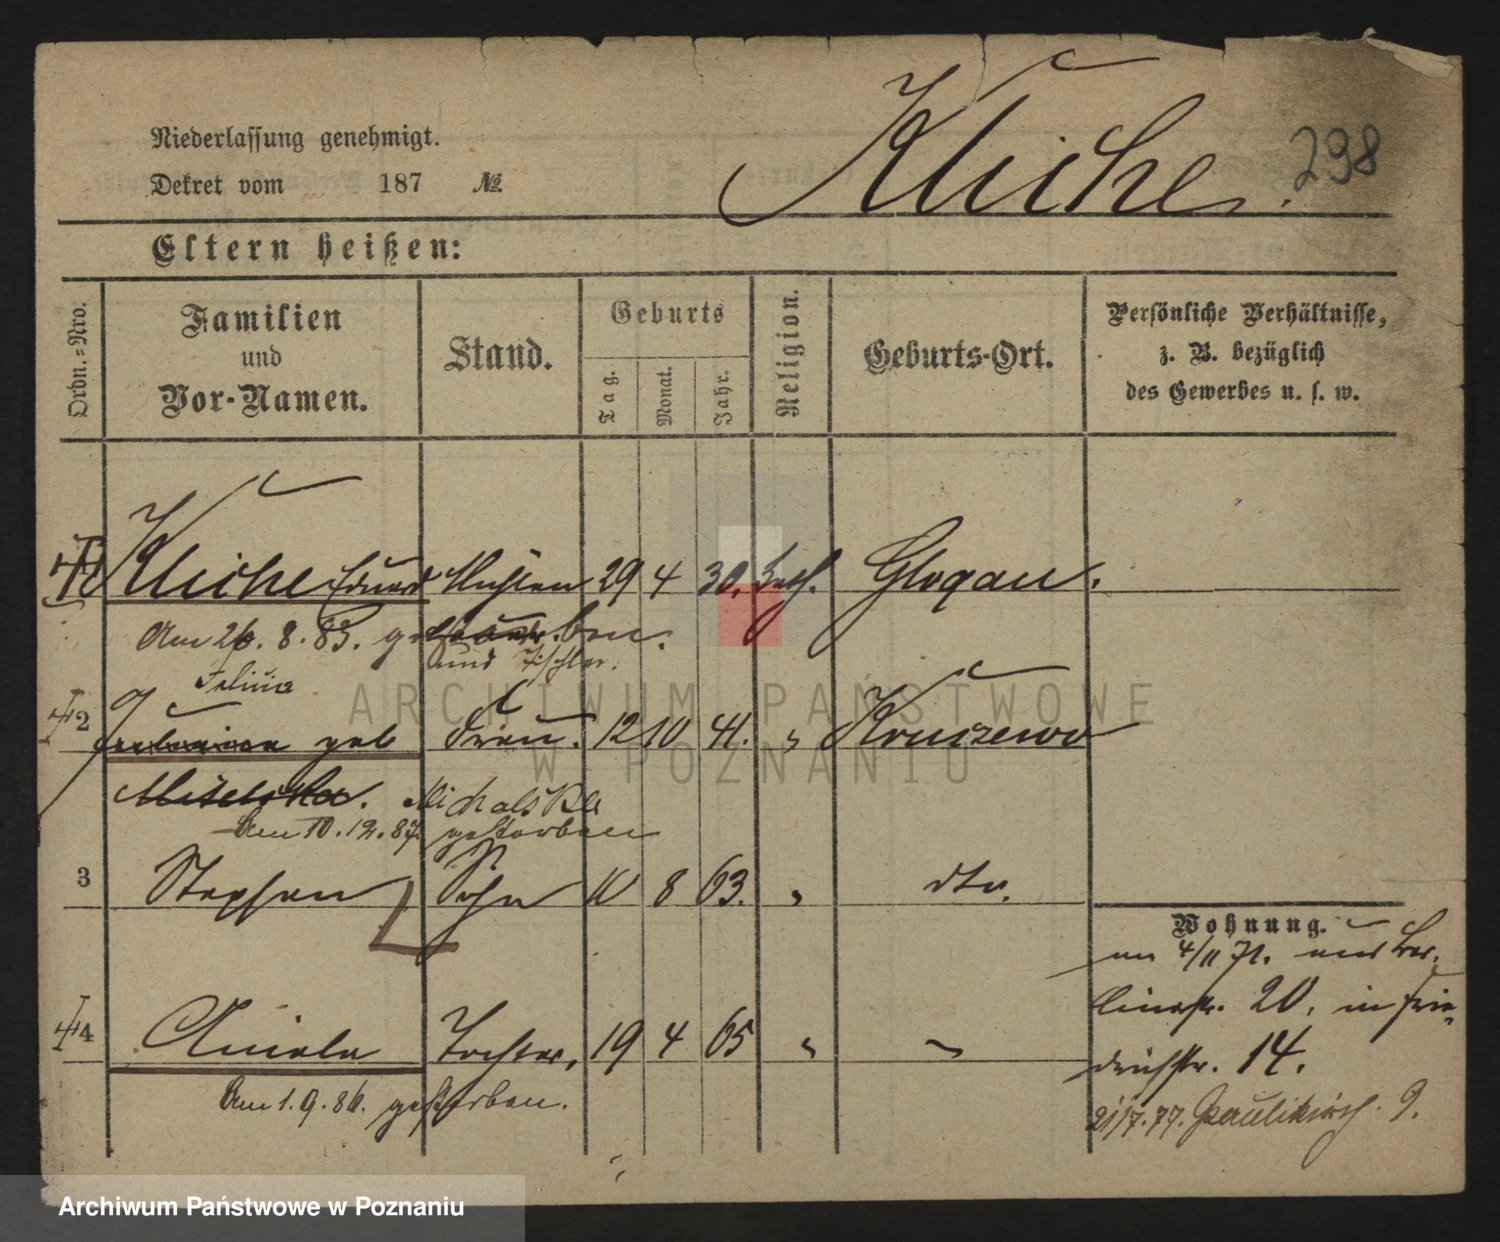 Niederlassung genehmigt.
Dekret vom 187 №
Kliche. 298
Eltern heißen:
Ordn.=Nro.
Familien
und
Vor-Namen.
Stand.
Geburts
Tag.
Monat.
Jahr.
Religion.
Geburts-Ort.
Persönliche Verhältnisse,
z. B. bezüglich
des Gewerbes u. s. w.
Kliche Eduard Mühlen 29 4 30. kath. Glogau.
Am 26. 8. 83. gestorben.
und Tischler.
2 geb Frau. 12 10 41. " Kruszewo
Michalska
Am 10. 12. 87. gestorben
3 Stephan Sohn 10 8 63. " dto.
Wohnung.
am 4/11 71. aus Ber-
linerstr. 20. in Frie-
drichstr. 14.
21/7. 77. Paulikirch. 9.
4 Aniela Tochter. 19 4 65 "
Am 1. 9. 86. gestorben.
ARCHIWUM PAŃSTWOWE
W POZNANIU
Archiwum Państwowe w Poznaniu